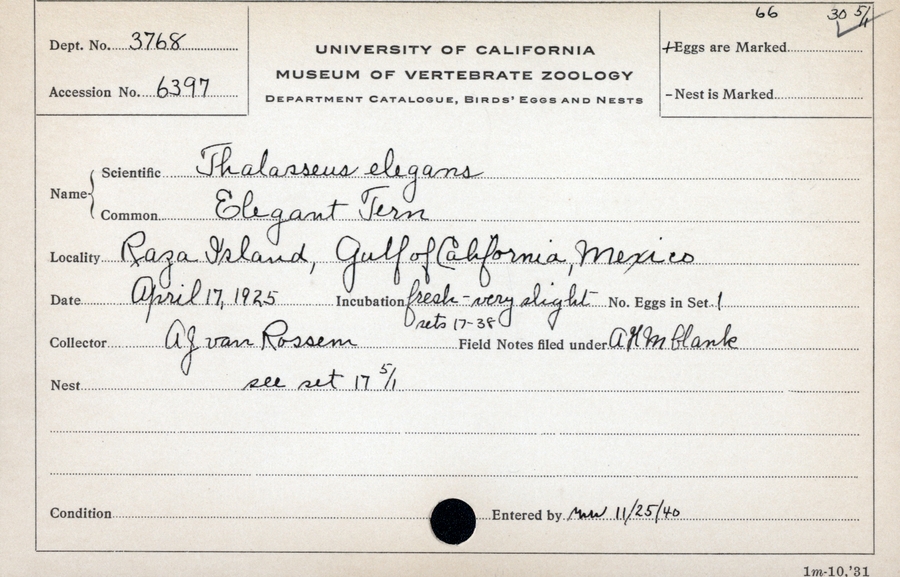 66 30 5/1
Dept. No. 3768
UNIVERSITY OF CALIFORNIA
+Eggs are Marked
MUSEUM OF VERTEBRATE ZOOLOGY
Accession No. 6397
DEPARTMENT CATALOGUE, BIRDS' EGGS AND NESTS
-Nest is Marked
Name
Scientific Thalasseus elegans
Common Elegant Tern
Locality Raza Island, Gulf of California, Mexico
Date April 17, 1925 Incubation fresh-very slight No. Eggs in Set 1
sets 17-38
Collector AJ van Rossem Field Notes filed under
Nest see set 17 5/1
Condition Entered by 11/25/40
1m-10,'31